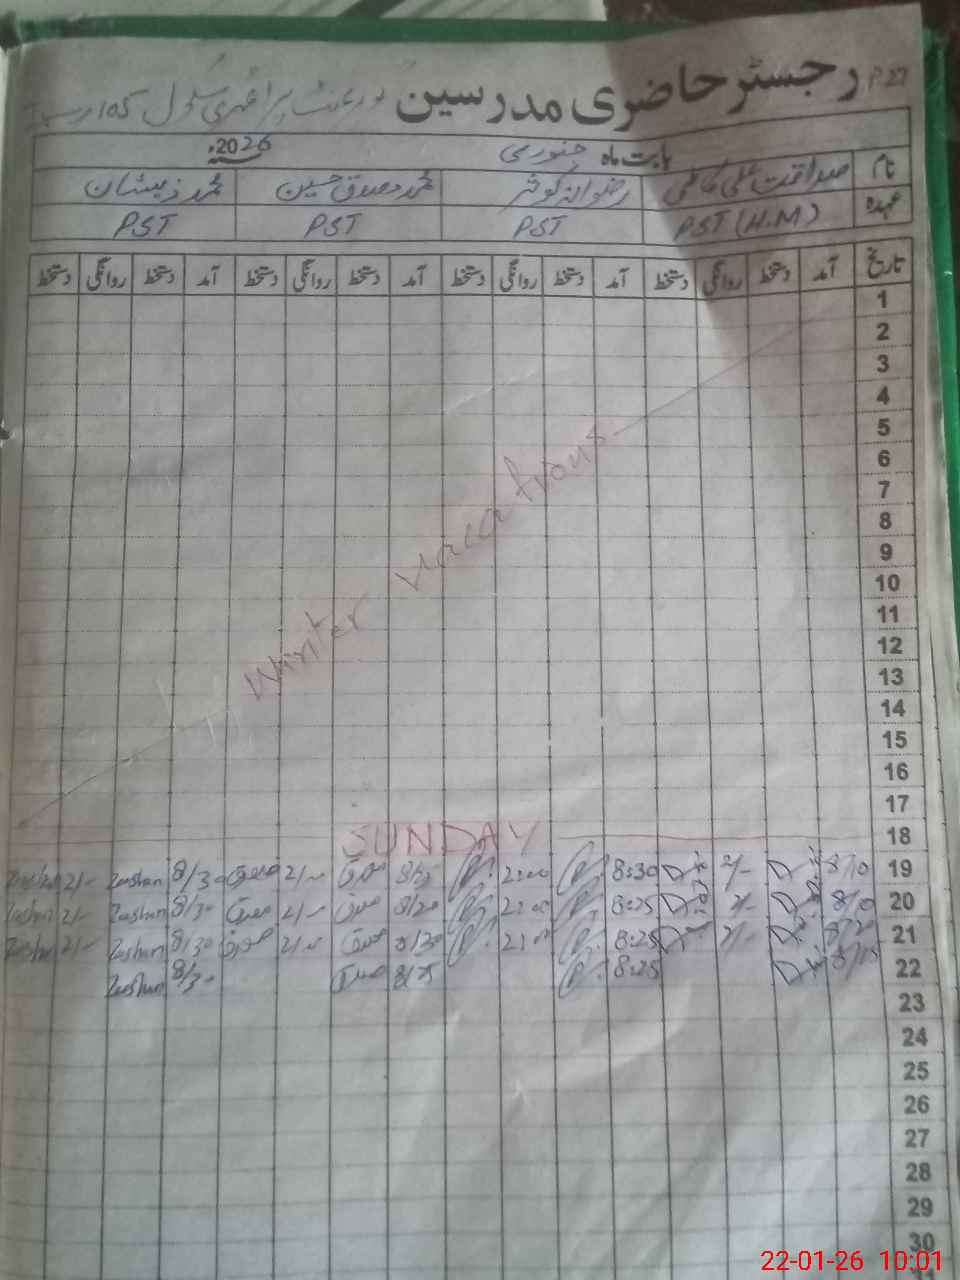 رجسٹر حاضری مدرسین گورنمنٹ پرائمری سکول P.27
بابت ماہ جنوری 2026ء
نام صداقت علی کاظمی رضوانہ کوثر محمد مصدق حسین محمد ذیشان
عہدہ PST (H.M) PST PST PST
تاریخ آمد دستخط روانگی دستخط آمد دستخط روانگی دستخط آمد دستخط روانگی دستخط آمد دستخط روانگی دستخط
1
2
3
4
5
6
7
8
9
10
11
12
13
14
15
16
17
Winter vacations
18 SUNDAY
19 8/10 2/- 8:30 2:00 8/25 مصدق 2/- مصدق 8/30 Zeeshan 2/- Zeeshan
20 8/10 2/- 8:25 2:00 8/20 مصدق 2/- مصدق 8/30 Zeeshan 2/- Zeeshan
21 8/20 2/- 8:25 2:00 8/30 مصدق 2/- مصدق 8/30 Zeeshan 2/- Zeeshan
22 8/15 8:25 8/25 مصدق 8/30 Zeeshan
23
24
25
26
27
28
29
30
22-01-26 10:01